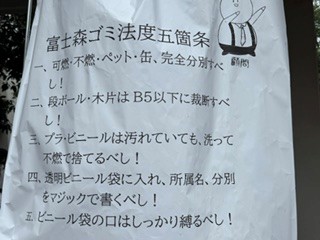 富士森ゴミ法度五箇条
顧問
一、可燃・不燃・ペット・缶、完全分別すべ
し！
二、段ボール・木片はB5以下に裁断すべ
し！
三、プラ・ビニールは汚れていても、洗って
不燃で捨てるべし！
四、透明ビニール袋に入れ、所属名、分別
をマジックで書くべし！
五、ビニール袋の口はしっかり縛るべし！